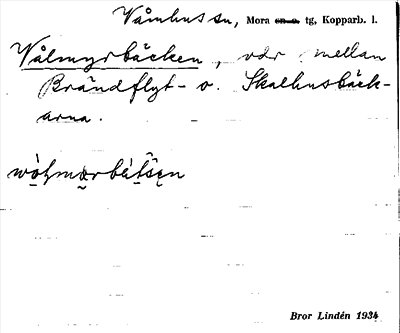 Våmhus sn, Mora tg, Kopparb. l.
Vålmyrbäcken, vdr mellan
Brändflyt- o. Skalhusbäck-
arna.
Bror Lindén 1934